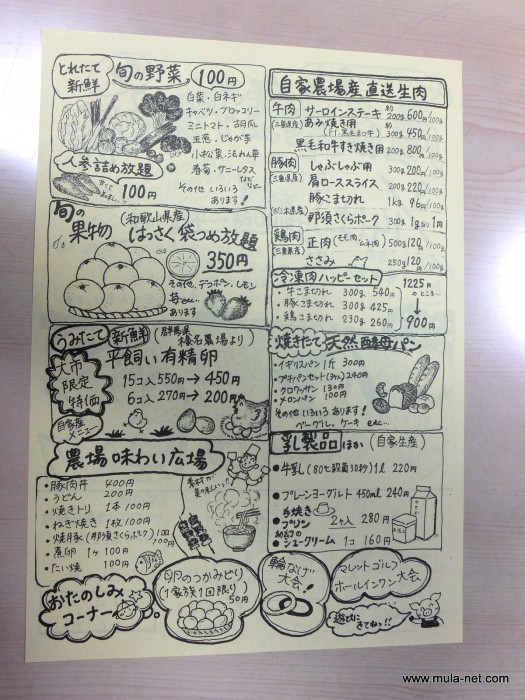 とれたて
新鮮
旬の野菜 100円
白菜・白ネギ
キャベツ・ブロッコリー
ミニトマト・胡瓜
玉葱・じゃが芋
小松菜・法れん草
春菊・サニーレタス
などなど
その他いろいろ
あります!
人参詰め放題
100円
旬の
果物
(和歌山県産)
はっさく 袋つめ放題
350円
その他、デコポン、レモン
苺etc…
あります
うみたて
新鮮
(群馬県
榛名農場より)
平飼い有精卵
大市
限定
特価
15コ入550円→450円
6コ入270円→200円
自家産
メニュー
農場味わい広場
・豚肉丼 400円
・うどん 200円
・焼きトリ 1本100円
・ねぎ焼き 1枚100円
・焼豚(那須さくらポーク)1回100円
・煮卵 1ヶ100円
・たい焼 100円
素材が
美味しい!
おたのしみ
コーナー
卵のつかみどり
(1家族1回限り)
50円
輪なげ
大会!
マレットゴルフ
ホールインワン大会
遊びに
きてねっ!!
自家農場産 直送生肉
牛肉
(三重県産)
サーロインステーキ 約200g600円/100g
あみ焼き用 約300g450円/100g
(F1・黒毛和牛)
黒毛和牛すき焼き用 200g800円/100g
豚肉
(三重県産)
しゃぶしゃぶ用 300g220円/100g
肩ローススライス 200g220円/100g
豚こま切れ 1kg 96円/100g
(栃木県産)
那須さくらポーク 300g1g当り1円
鶏肉
(三重県産)
正肉(もも肉・ムネ肉) 500g120円/100g
ささみ 250g120円/100g
冷凍肉ハッピーセット
・牛こま切れ 300g 540円
・豚こま切れ 300g 425円
・鶏こま切れ 230g 260円
1225円
のところ…
900円
焼きたて 天然酵母パン
・イギリスパン 1斤 300円
・プチパンセット(3ヶ入)240円
・クロワッサン 130円
・メロンパン 100円
その他いろいろあります!
ベーグル、ケーキ etc…
乳製品ほか (自家生産)
●牛乳(80℃殺菌30秒)1ℓ 220円
●プレーンヨーグルト 450ml 240円
●手焼き
プリン 2ヶ入 280円
●シュークリーム 1コ 160円
www.mula-net.com